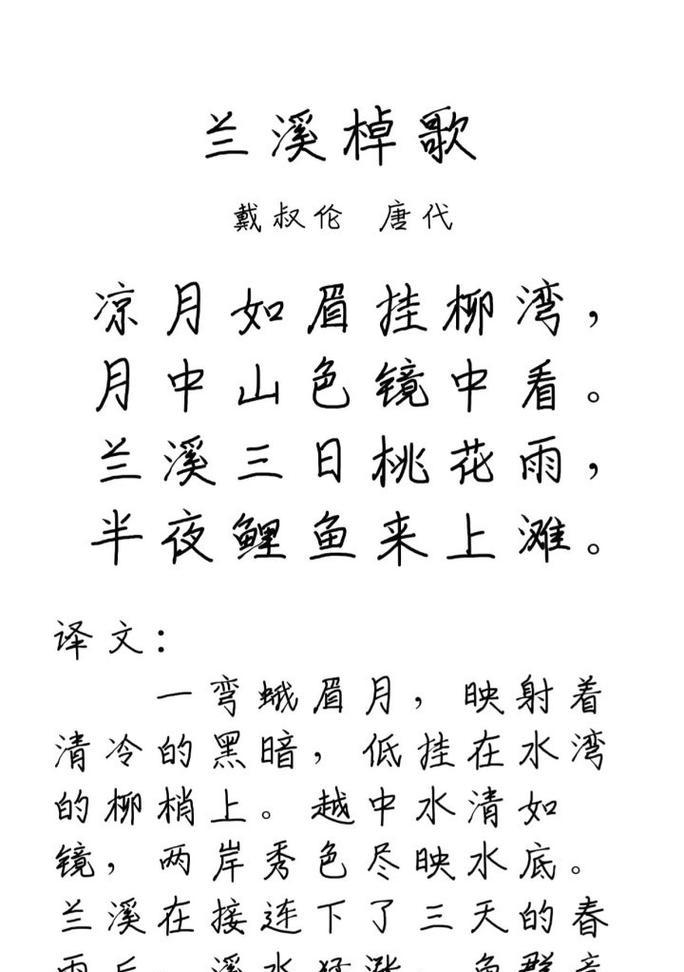 兰溪棹歌
戴叔伦 唐代
凉月如眉挂柳湾，
月中山色镜中看。
兰溪三日桃花雨，
半夜鲤鱼来上滩。
译文：
一弯蛾眉月，映射着
清冷的黑暗，低挂在水湾
的柳梢上。越中水清如
镜，两岸秀色尽映水底。
兰溪在接连下了三天的春
雨后，溪水猛涨，鱼群